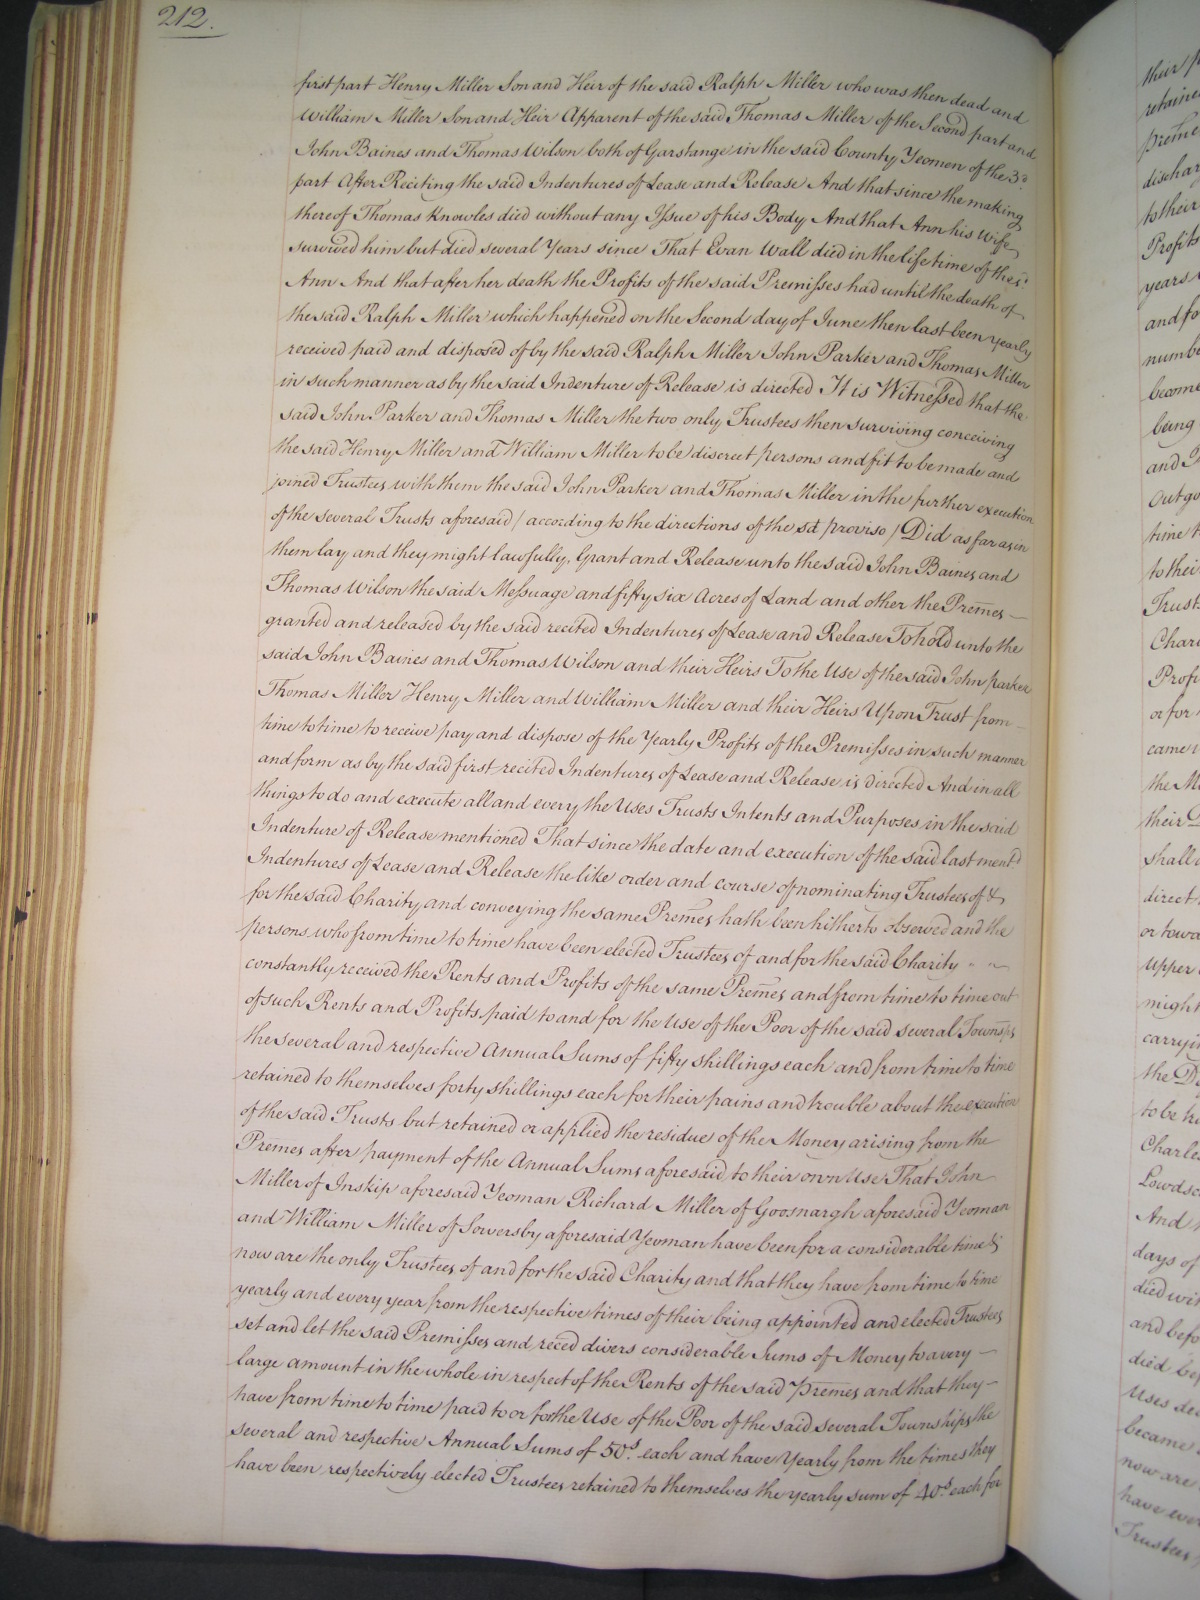 212.
first part Henry Miller Son and Heir of the said Ralph Miller who was then dead and
William Miller Son and Heir Apparent of the said Thomas Miller of the Second part and
John Baines and Thomas Wilson both of Garstange in the said County Yeomen of the 3d.
part After Reciting the said Indentures of Lease and Release And that since the making
thereof Thomas Knowles died without any Issue of his Body And that Ann his Wife
survived him but died several Years since That Evan Wall died in the life time of the sd.
Ann And that after her death the Profits of the said Premisses had until the death of
the said Ralph Miller which happened on the Second day of June then last been yearly
received paid and disposed of by the said Ralph Miller John Parker and Thomas Miller
in such manner as by the said Indenture of Release is directed It is Witnessed that the
said John Parker and Thomas Miller the two only Trustees then surviving conceiving
the said Henry Miller and William Miller to be discreet persons and fit to be made and
joined Trustees with them the said John Parker and Thomas Miller in the further execution
of the several Trusts aforesaid / according to the directions of the sd. proviso / Did as far as in
them lay and they might lawfully, Grant and Release unto the said John Baines and
Thomas Wilson the said Messuage and fifty six Acres of Land and other the Premes —
granted and released by the said recited Indentures of Lease and Release To hold unto the
said John Baines and Thomas Wilson and their Heirs To the Use of the said John parker
Thomas Miller Henry Miller and William Miller and their Heirs Upon Trust from
time to time to receive pay and dispose of the Yearly Profits of the Premisses in such manner
and form as by the said first recited Indentures of Lease and Release is directed And in all
things to do and execute all and every the Uses Trusts Intents and Purposes in the said
Indenture of Release mentioned That since the date and execution of the said last mentd.
Indentures of Lease and Release the like order and course of nominating Trustees of &
for the said Charity and conveying the same Premes hath been hitherto observed and the
persons who from time to time have been elected Trustees of and for the said Charity
constantly received the Rents and Profits of the same Premes and from time to time out
of such Rents and Profits paid to and for the Use of the Poor of the said several Townsps
the several and respective Annual Sums of fifty shillings each and from time to time
retained to themselves forty shillings each for their pains and trouble about the execution
of the said Trusts but retained or applied the residue of the Money arising from the
Premes after payment of the Annual Sums aforesaid to their own Use That John
Miller of Inskip aforesaid Yeoman Richard Miller of Goosnargh aforesaid Yeoman
and William Miller of Sowersby aforesaid Yeoman have been for a considerable time &
now are the only Trustees of and for the said Charity and that they have from time to time
yearly and every year from the respective times of their being appointed and elected Trustees
set and let the said Premisses and reced divers considerable Sums of Money to a very —
large amount in the whole in respect of the Rents of the said premes and that they —
have from time to time paid to or for the Use of the Poor of the said several Townships the
several and respective Annual Sums of 50s. each and have Yearly from the times they
have been respectively elected Trustees retained to themselves the yearly sum of 40s. each for